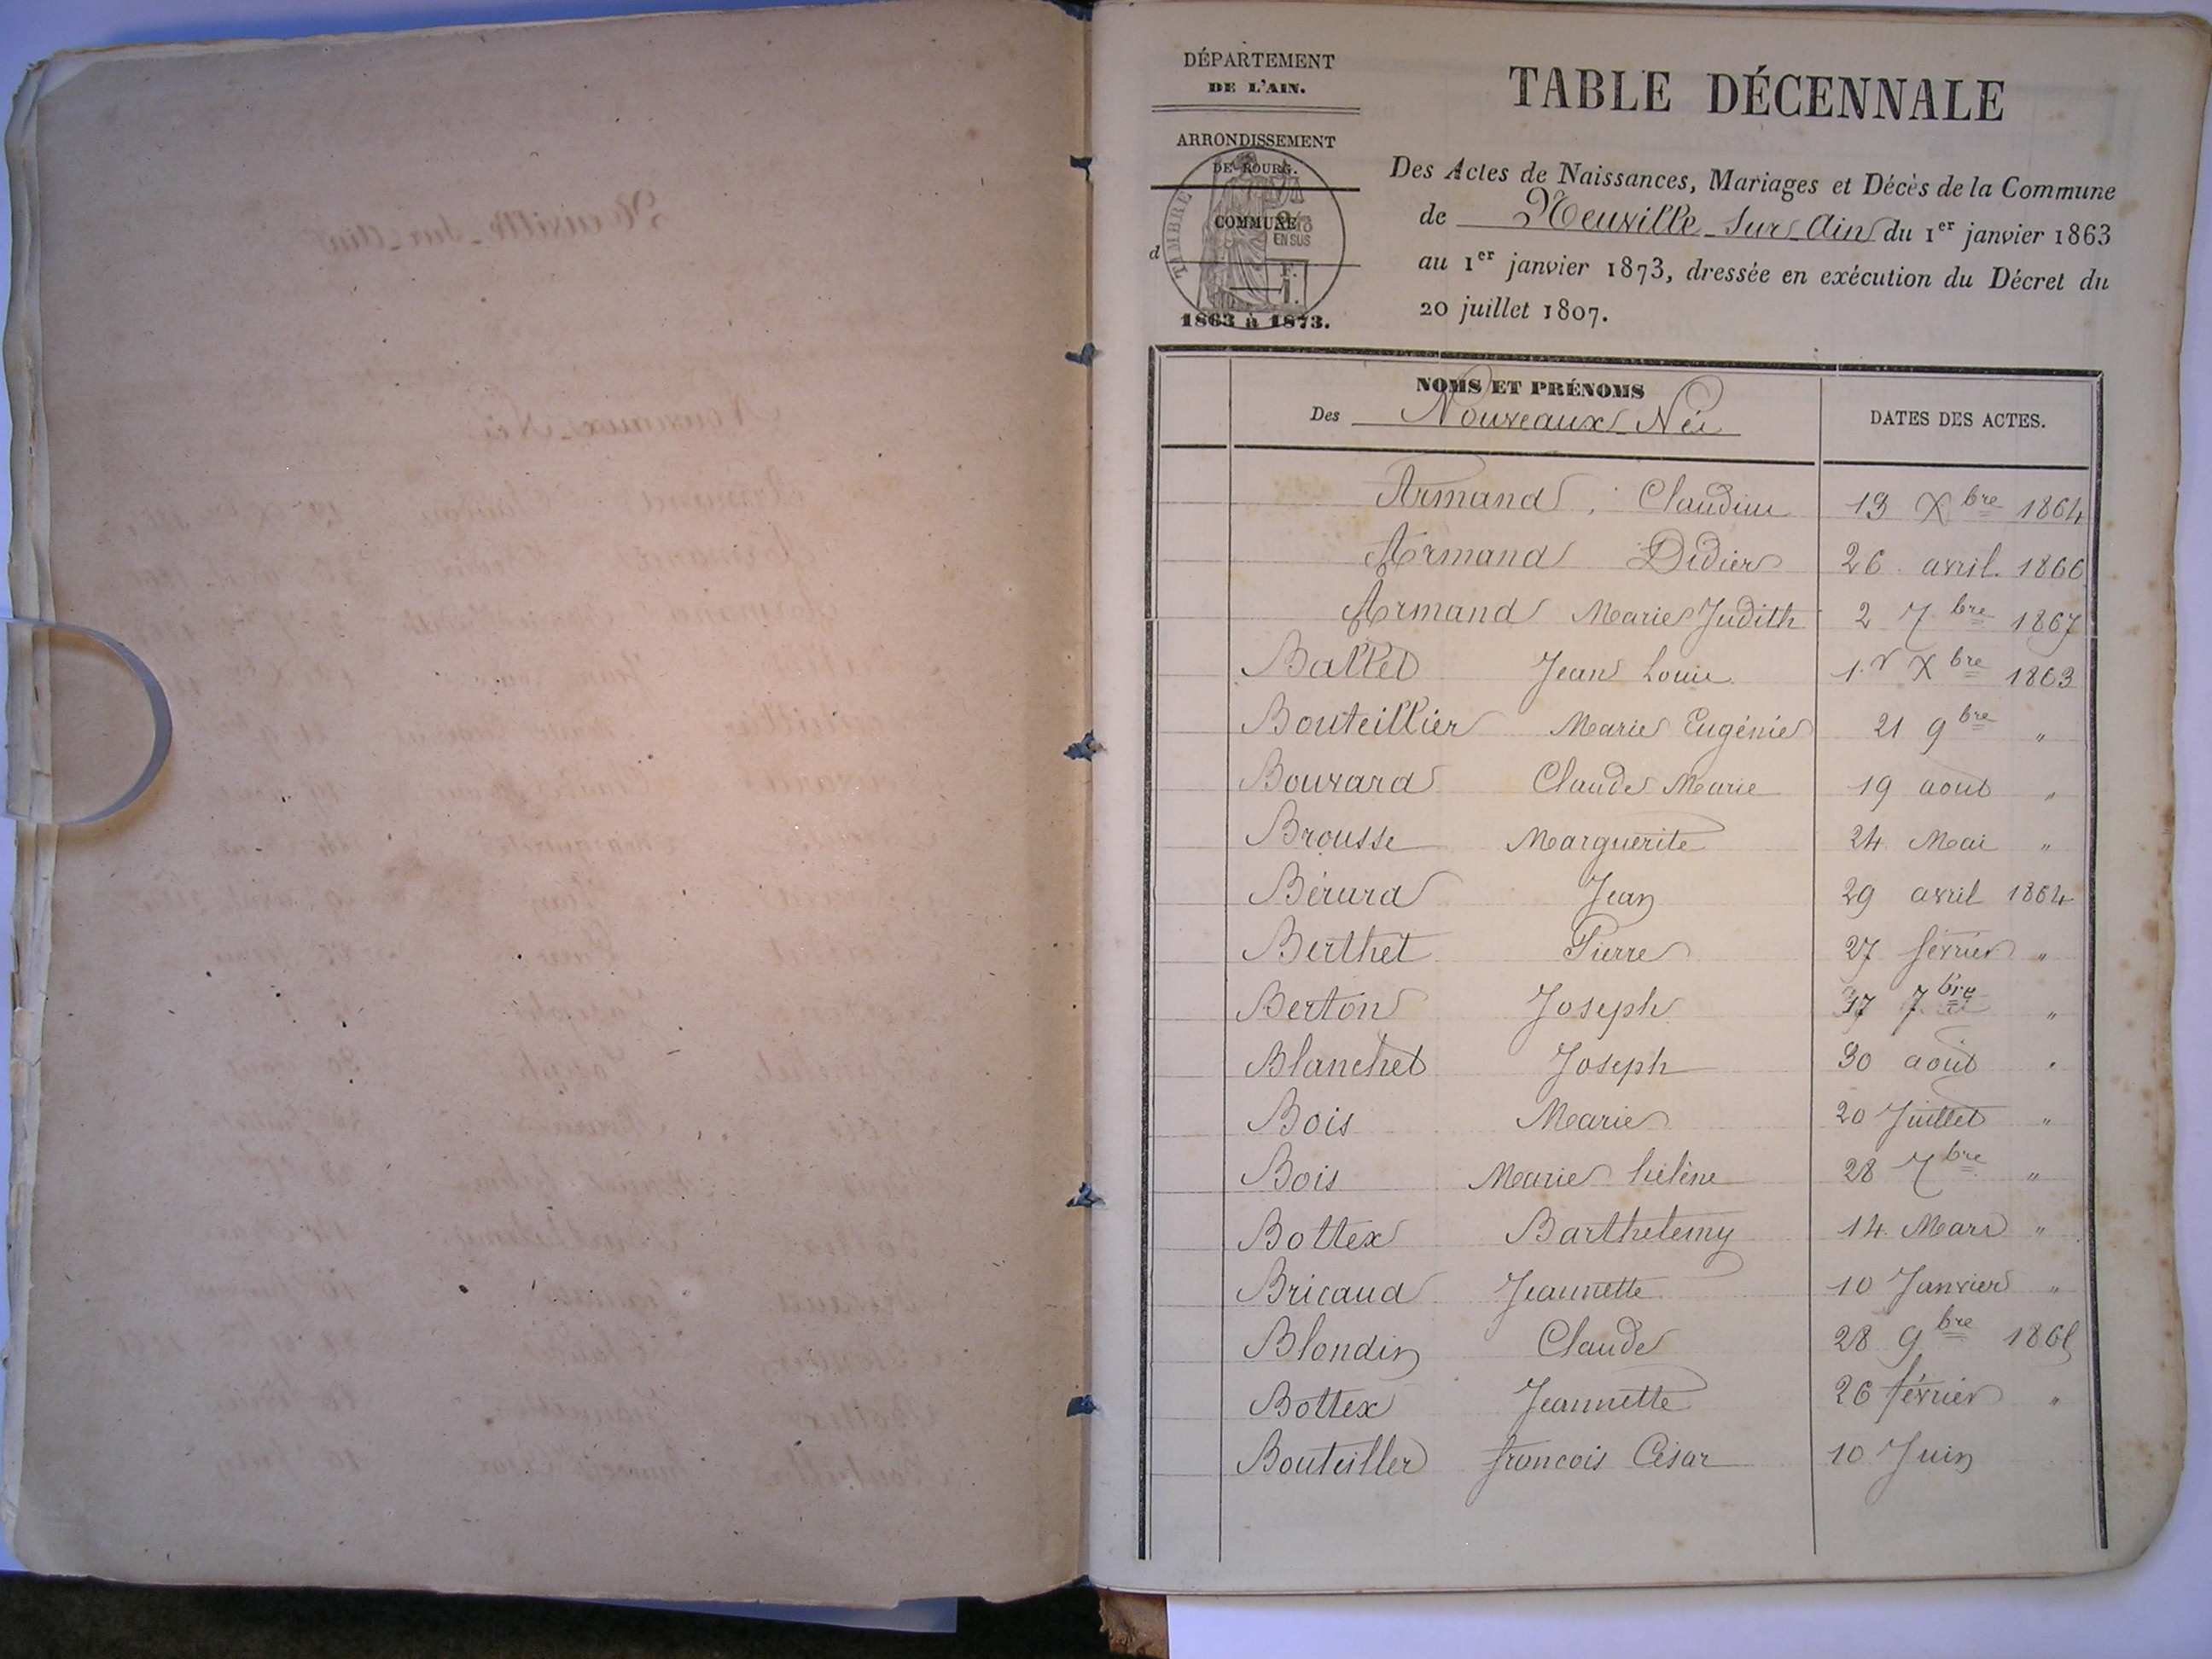 DÉPARTEMENT
DE L'AIN.
ARRONDISSEMENT
DE BOURG.
COMMUNE
d
TIMBRE
EN SUS
1863 à 1873.
TABLE DÉCENNALE
Des Actes de Naissances, Mariages et Décès de la Commune
de Neuville-sur-Ain du 1er janvier 1863
au 1er janvier 1873, dressée en exécution du Décret du
20 juillet 1807.
NOMS ET PRÉNOMS
Des Nouveaux-Nés
DATES DES ACTES.
Armand Claudine 13 Xbre 1864
Armand Didier 26 avril 1866
Armand Marie Judith 2 7bre 1867
Ballet Jean Louis 1.r Xbre 1863
Bouteillier Marie Eugénie 21 9bre "
Bouvard Claude Marie 19 aout "
Brousse Marguerite 24 Mai "
Bérard Jean 29 avril 1864
Berthet Pierre 27 février "
Berton Joseph 17 7bre "
Blanchet Joseph 30 août "
Bois Marie 20 Juillet "
Bois Marie hélène 28 7bre "
Bottex Barthelemy 14 Mars "
Bricaud Jeannette 10 Janvier "
Blondin Claude 28 9bre 1865
Bottex Jeannette 26 février "
Bouteiller francois César 10 Juin